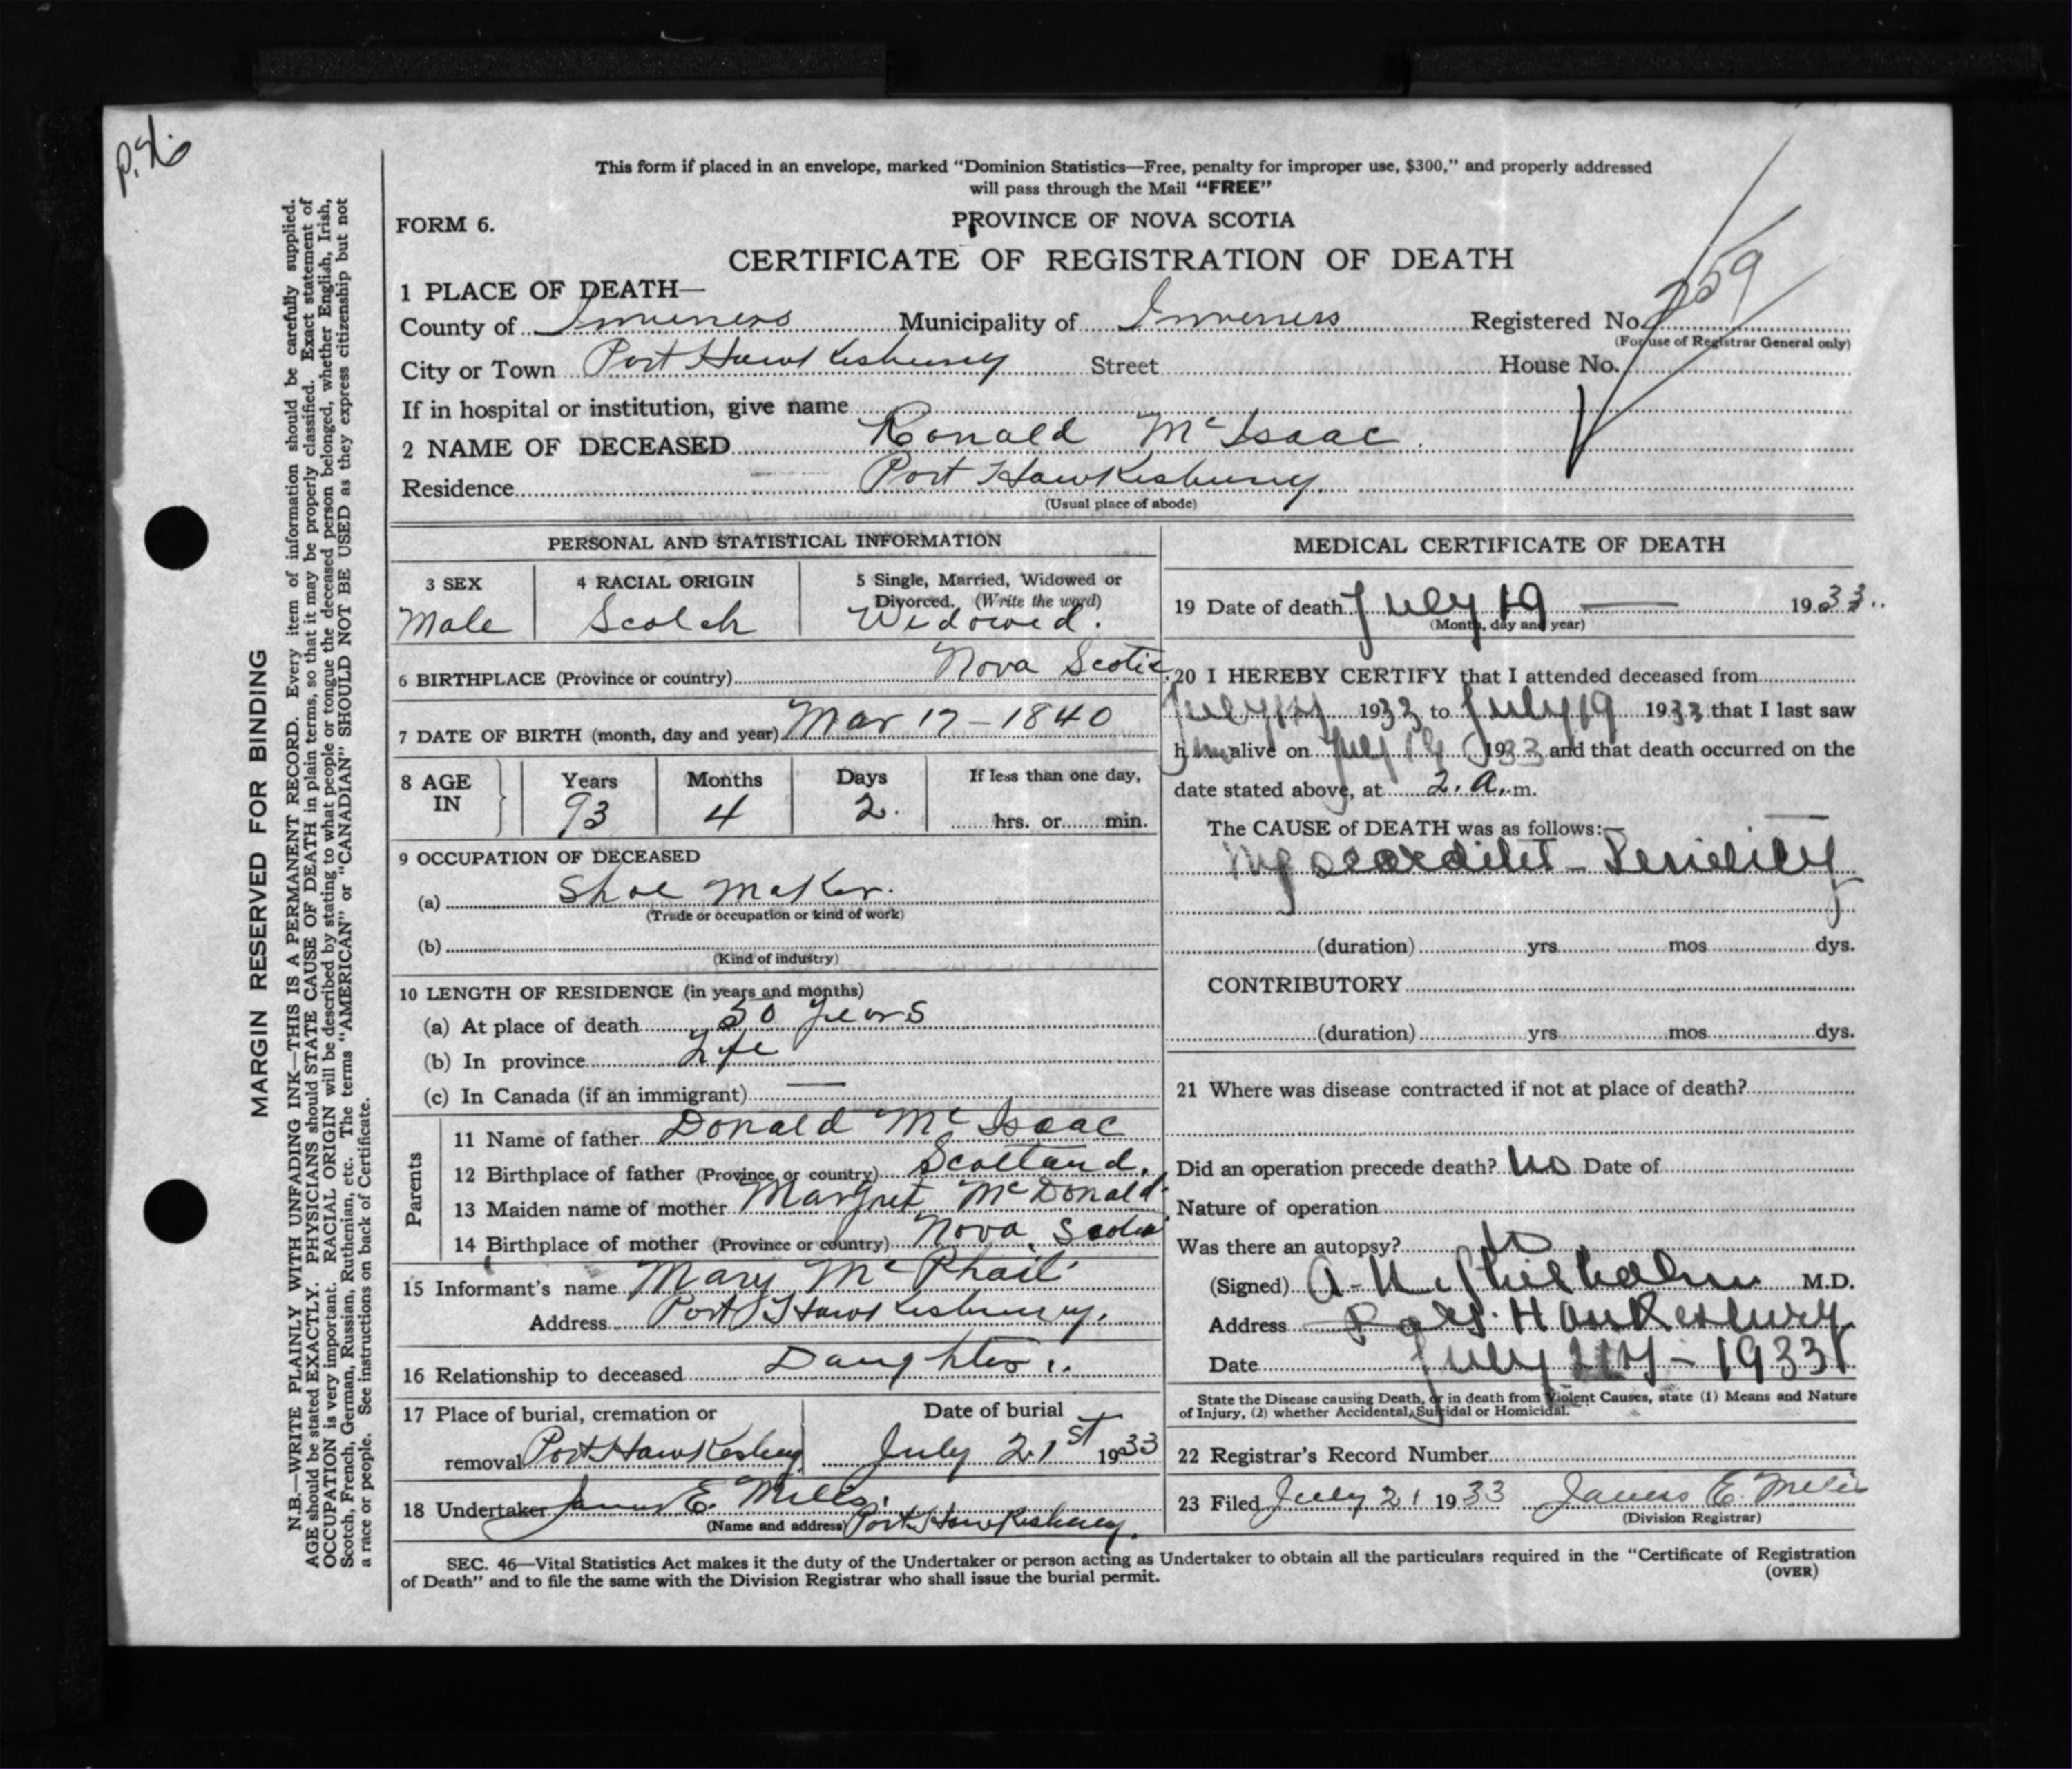 This form if placed in an envelope, marked “Dominion Statistics—Free, penalty for improper use, $300,” and properly addressed
will pass through the Mail “FREE”
FORM 6.
PROVINCE OF NOVA SCOTIA
CERTIFICATE OF REGISTRATION OF DEATH
1 PLACE OF DEATH—
County of Inverness Municipality of Inverness Registered No. 259
(For use of Registrar General only)
City or Town Port Hawkesbury Street House No.
If in hospital or institution, give name
2 NAME OF DECEASED Ronald McIsaac
Residence Port Hawkesbury
(Usual place of abode)
PERSONAL AND STATISTICAL INFORMATION
3 SEX 4 RACIAL ORIGIN 5 Single, Married, Widowed or
Divorced. (Write the word)
Male Scotch Widowed.
6 BIRTHPLACE (Province or country) Nova Scotia
7 DATE OF BIRTH (month, day and year) Mar 17 - 1840
8 AGE IN Years Months Days If less than one day,
93 4 2. hrs. or min.
9 OCCUPATION OF DECEASED
(a) Shoe Maker.
(Trade or occupation or kind of work)
(b)
(Kind of industry)
10 LENGTH OF RESIDENCE (in years and months)
(a) At place of death 50 years
(b) In province Life
(c) In Canada (if an immigrant) —
Parents
11 Name of father Donald McIsaac
12 Birthplace of father (Province or country) Scotland.
13 Maiden name of mother Margret McDonald
14 Birthplace of mother (Province or country) Nova Scotia
15 Informant's name Mary McPhail
Address Port Hawkesbury.
16 Relationship to deceased Daughter.
17 Place of burial, cremation or Date of burial
removal Port Hawkesbury July 21st 1933
18 Undertaker James E. Mills.
(Name and address) Port Hawkesbury.
MEDICAL CERTIFICATE OF DEATH
19 Date of death July 19 — 1933
(Month, day and year)
20 I HEREBY CERTIFY that I attended deceased from
July 1933 to July 19 1933 that I last saw
him alive on July 1933 and that death occurred on the
date stated above, at 2. a. m.
The CAUSE of DEATH was as follows:—
Myocarditis - Senility
(duration) yrs mos dys.
CONTRIBUTORY
(duration) yrs mos dys.
21 Where was disease contracted if not at place of death?
Did an operation precede death? No Date of
Nature of operation
Was there an autopsy? No
(Signed) M.D.
Address Port Hawkesbury
Date July 21st - 1933
State the Disease causing Death, or in death from Violent Causes, state (1) Means and Nature
of Injury, (2) whether Accidental, Suicidal or Homicidal.
22 Registrar's Record Number
23 Filed July 21 1933 James E. Mills
(Division Registrar)
SEC. 46—Vital Statistics Act makes it the duty of the Undertaker or person acting as Undertaker to obtain all the particulars required in the “Certificate of Registration
of Death” and to file the same with the Division Registrar who shall issue the burial permit.
(OVER)
MARGIN RESERVED FOR BINDING
N.B.—WRITE PLAINLY WITH UNFADING INK—THIS IS A PERMANENT RECORD. Every item of information should be carefully supplied.
AGE should be stated EXACTLY. PHYSICIANS should STATE CAUSE OF DEATH in plain terms, so that it may be properly classified. Exact statement of
OCCUPATION is very important. RACIAL ORIGIN will be described by stating to what people or tongue the deceased person belonged, whether English, Irish,
Scotch, French, German, Russian, Ruthenian, etc. The terms “AMERICAN” or “CANADIAN” SHOULD NOT BE USED as they express citizenship but not
a race or people. See instructions on back of Certificate.